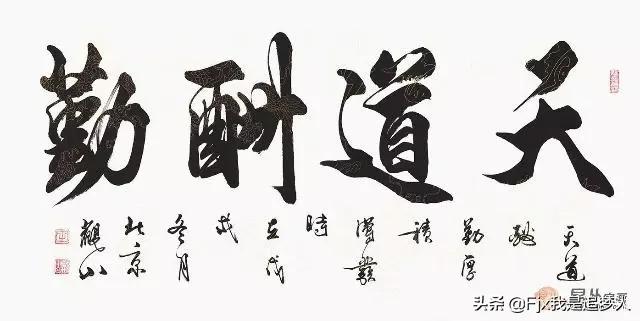 天道酬勤
天道酬勤厚積薄發時在戊戌冬月北京
头条 @Fjx我是追梦人